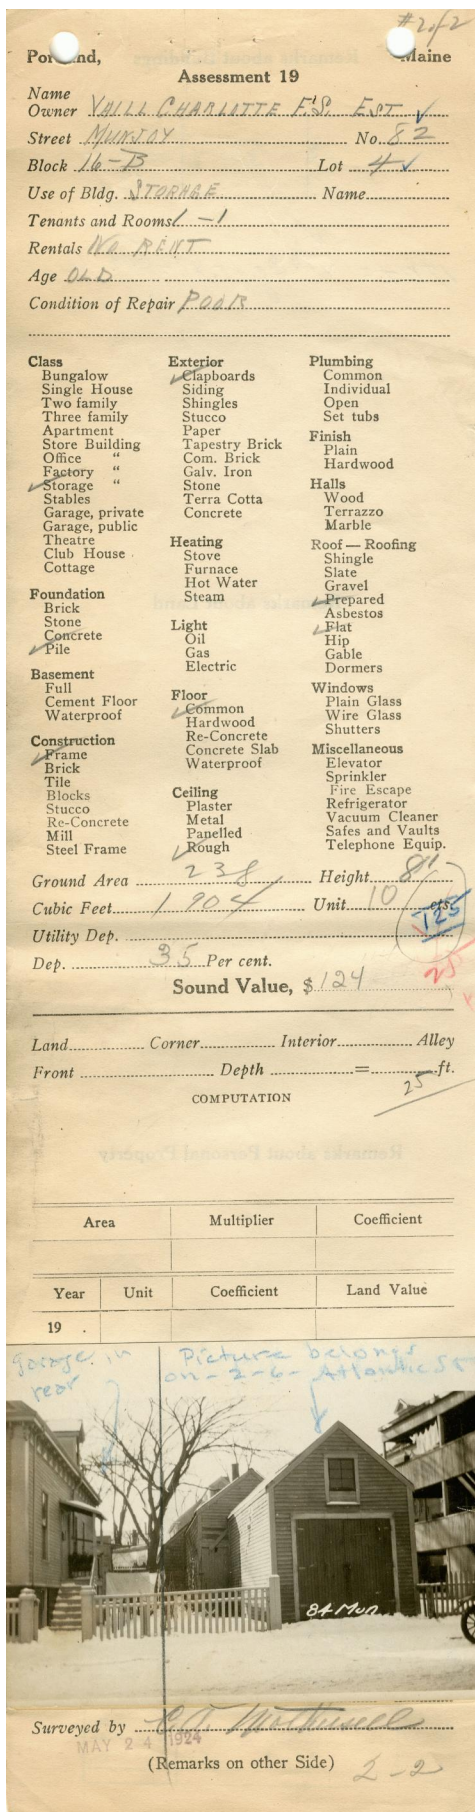 #2 of 2
Portland, Maine
Assessment 19
Name
Owner VAILL CHARLOTTE F.S. EST ✓
Street MUNJOY No. 82
Block 16-B Lot 4 ✓
Use of Bldg. STORAGE Name
Tenants and Rooms 1-1
Rentals NO RENT
Age OLD
Condition of Repair POOR
Class
Bungalow
Single House
Two family
Three family
Apartment
Store Building
Office "
Factory "
✓ Storage "
Stables
Garage, private
Garage, public
Theatre
Club House
Cottage
Foundation
Brick
Stone
Concrete
✓ Pile
Basement
Full
Cement Floor
Waterproof
Construction
✓ Frame
Brick
Tile
Blocks
Stucco
Re-Concrete
Mill
Steel Frame
Exterior
✓ Clapboards
Siding
Shingles
Stucco
Paper
Tapestry Brick
Com. Brick
Galv. Iron
Stone
Terra Cotta
Concrete
Heating
Stove
Furnace
Hot Water
Steam
Light
Oil
Gas
Electric
Floor
✓ Common
Hardwood
Re-Concrete
Concrete Slab
Waterproof
Ceiling
Plaster
Metal
Panelled
✓ Rough
Plumbing
Common
Individual
Open
Set tubs
Finish
Plain
Hardwood
Halls
Wood
Terrazzo
Marble
Roof — Roofing
Shingle
Slate
Gravel
✓ Prepared
Asbestos
✓ Flat
Hip
Gable
Dormers
Windows
Plain Glass
Wire Glass
Shutters
Miscellaneous
Elevator
Sprinkler
Fire Escape
Refrigerator
Vacuum Cleaner
Safes and Vaults
Telephone Equip.
Ground Area 238 Height 8'
Cubic Feet 1904 Unit 10 cts.
125
Utility Dep.
Dep. 35 Per cent.
25
Sound Value, $ 124
Land Corner Interior Alley
Front Depth = ft.
25
COMPUTATION
Area Multiplier Coefficient
Year Unit Coefficient Land Value
19 .
garage in
rear
Picture belongs
on - 2-6- Atlantic St
84 Mun
Surveyed by
MAY 24 1924
(Remarks on other Side)
2-2